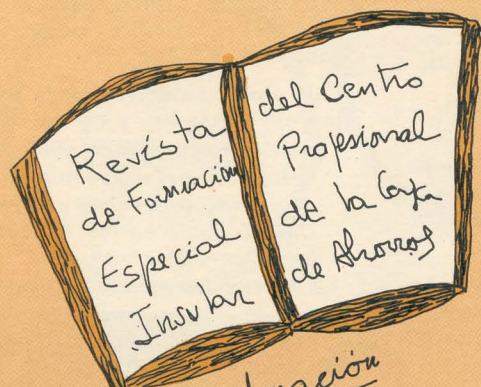 Revista
de Formación
Especial
Insular
del Centro
Profesional
de la Caja
de Ahorros